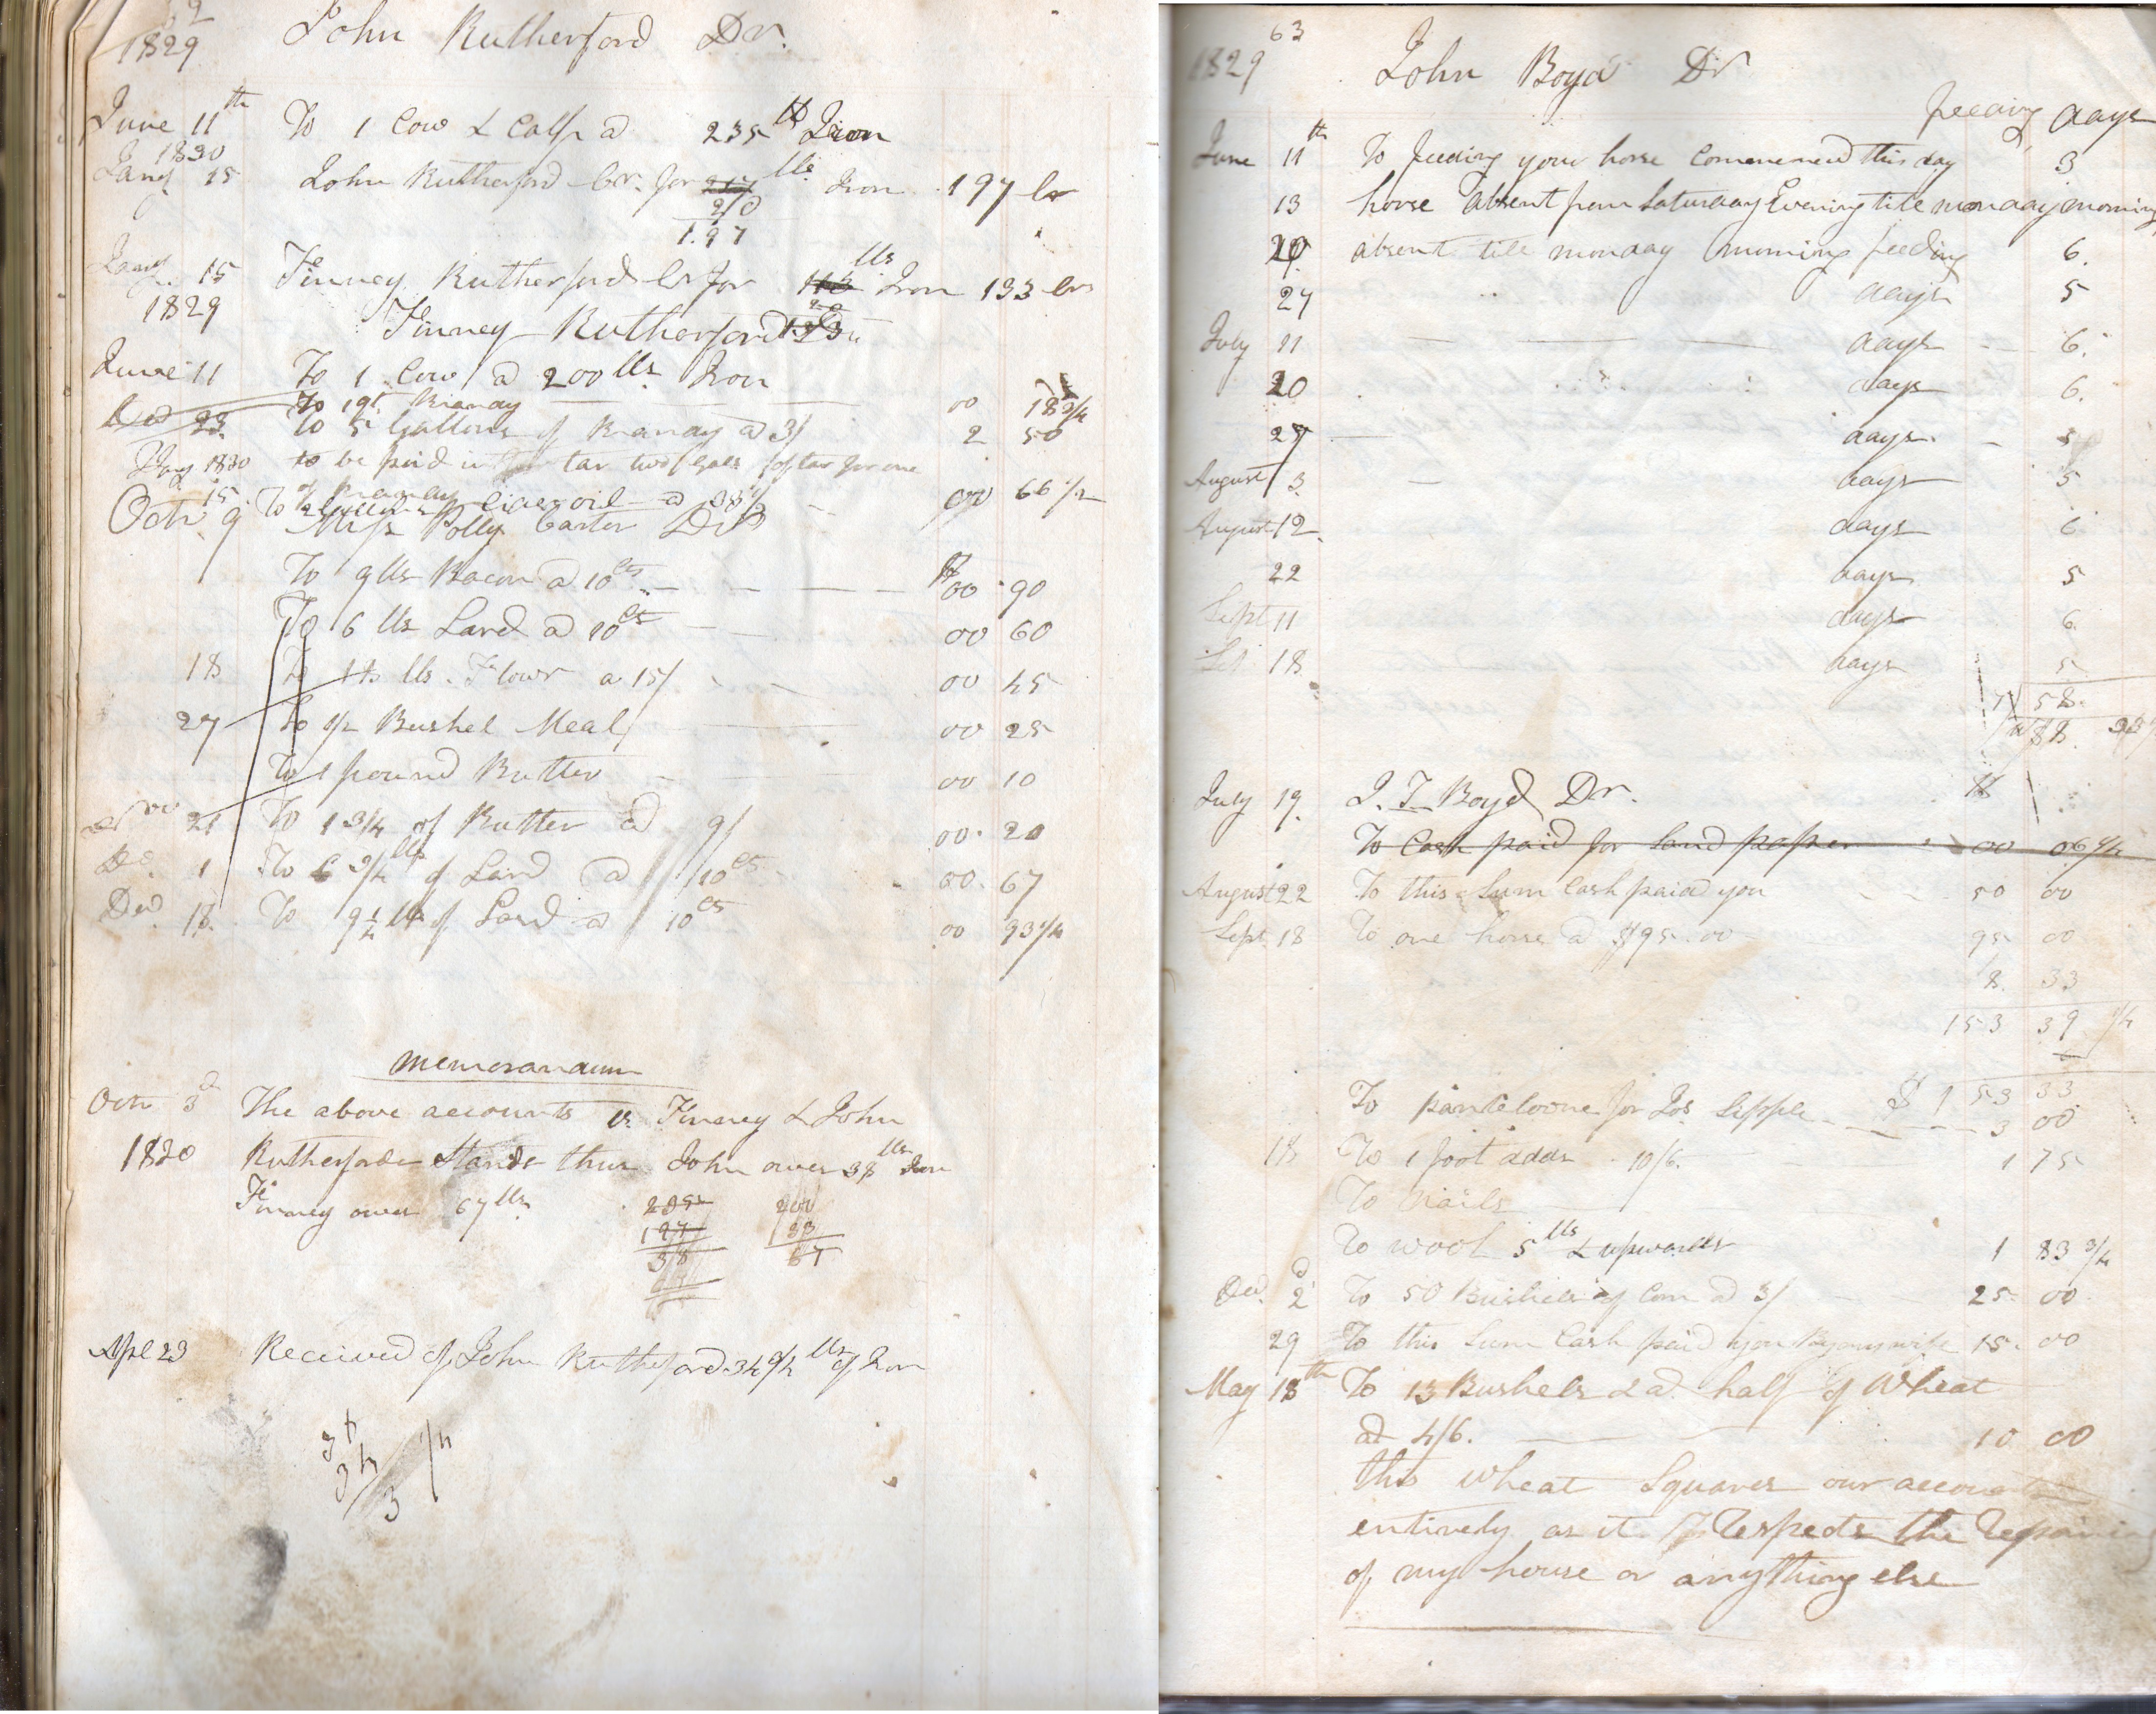 1829 John Rutherford Dr.
June 11th To 1 Cow & Calf a 235 lb Iron
1830
Jany 15 John Rutherford Cr. for 217 lbs Iron 197 Cr
20
197
Jany 15 Finney Rutherford Cr for 113 lbs Iron 133 Cr
20
1829 Finney Rutherford 133
June 11 To 1 Cow a 200 lbs Iron
To 1 qt Brandy 00 18 3/4
Decd 23 To 5 Gallons of Brandy a 3/ 2 50
Jany 1830 to be paid in tar two gals of tar for one
of Brandy
15 To 2 gallons oil a 33 1/3 00 66 1/2
Octr 9 Miss Polly Carter Dr
To 9 lbs Bacon a 10 cts $ 00 90
To 6 lbs Lard a 10 cts 00 60
18 To 14 lbs. Flowr a 15/ 00 45
27 To 1/2 Bushel Meal 00 25
To 1 pound Butter 00 10
Nov 21 To 1 3/4 of Butter a 9/ 00 20
De. 1 To 6 3/4 lbs of Lard a 10 cts 00. 67
Decd 18. To 9 1/4 lbs of Lard a 10 cts 00 93 1/4
Memorandum
Octr 3d The above accounts vs Finney & John
1830 Rutherfords Stands thus John owes 38 lbs Iron
Finney owes 67 lbs 235 200
197 33
38 67
Apl 23 Received of John Rutherford 34 3/4 lbs of Iron
34
34 1/4
3
63
1829 John Boyd Dr
feeding days
June 11th To feeding your horse Commenced this day 3
13 horse Absent from Saturday Evening till monday morning
20 absent till monday morning feeding 6.
27 " days 5
July 11 days 6.
20 days 6.
27 days 5
August 3. days 5
August 12. days 6
22 days 5
Sept 11 days 6.
Set 18 days 5
7 58.
$8. 33
July 19. J. T. Boyd Dr. $
To Cash paid for Sand paper 00 06 1/4
August 22 To this Sum Cash paid you 50 00
Sept. 18 To one horse a $95.00 95 00
8. 33
153 39 1/4
$153 33
To panteloone for Jos Sipple 3 00
18 To 1 foot adds 10/6. 1 75
To Nails
To wool 5 lbs & upwards 1 83 3/4
Decd. 2d To 50 Bushels of Corn a 3/ 25 00
29 To this Sum Cash paid you By my wife 15. 00
May 18th To 13 Bushels & a half of Wheat
ad 4/6. 10 00
this wheat Squares our accounts
entirely as it Respects the Repairing
of my house or anything else